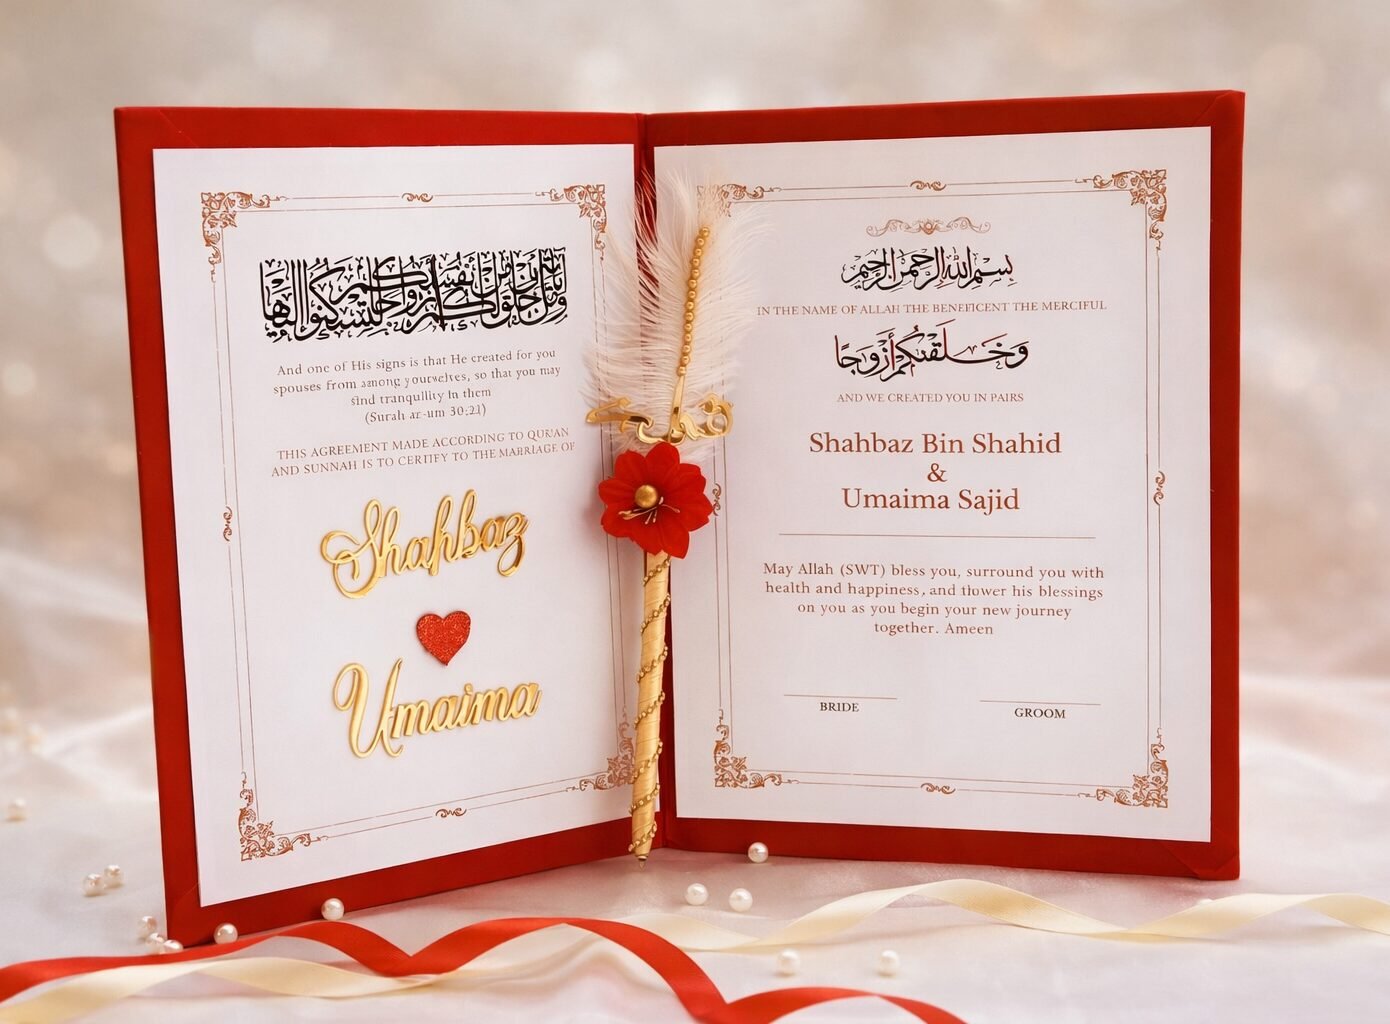 ومن آياته أن خلق لكم من أنفسكم أزواجا لتسكنوا إليها
And one of His signs is that He created for you
spouses from among yourselves, so that you may
find tranquility in them
(Surah ar-um 30:21)
THIS AGREEMENT MADE ACCORDING TO QUR'AN
AND SUNNAH IS TO CERTIFY TO THE MARRIAGE OF
Shahbaz
Umaima
بِسْمِ اللهِ الرَّحْمٰنِ الرَّحِيْمِ
IN THE NAME OF ALLAH THE BENEFICENT THE MERCIFUL
وَخَلَقْنَٰكُمْ أَزْوَٰجًا
AND WE CREATED YOU IN PAIRS
Shahbaz Bin Shahid
&
Umaima Sajid
May Allah (SWT) bless you, surround you with
health and happiness, and flower his blessings
on you as you begin your new journey
together. Ameen
BRIDE
GROOM